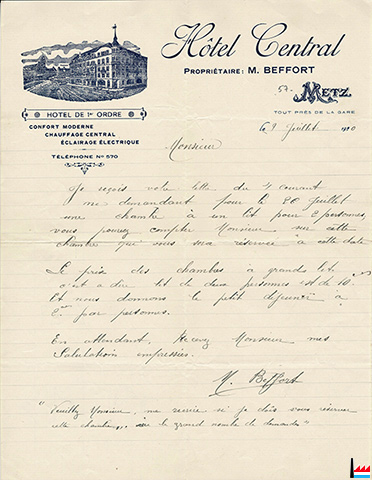 Hôtel Central
PROPRIÉTAIRE: M. BEFFORT
METZ,
TOUT PRÈS DE LA GARE
HOTEL DE 1er ORDRE
CONFORT MODERNE
CHAUFFAGE CENTRAL
ÉCLAIRAGE ÉLECTRIQUE
TÉLÉPHONE No 570
Juillet
Monsieur
Je reçois votre lettre du 4 courant
me demandant pour le 20 Juillet
une chambre à un lit pour 2 personnes,
vous pouvez compter Monsieur sur cette
chambre qui vous sera réservée à cette date
Le prix des chambres à grands lits,
c'est a dire lit de deux personnes est de 10
Et nous donnons le petit déjeuner à
par personnes.
En attendant, Recevez Monsieur mes
Salutations empressées.
M. Beffort
"Veuillez Monsieur, me si je dois vous réserver
cette chambre, le grand nombre de demandes"